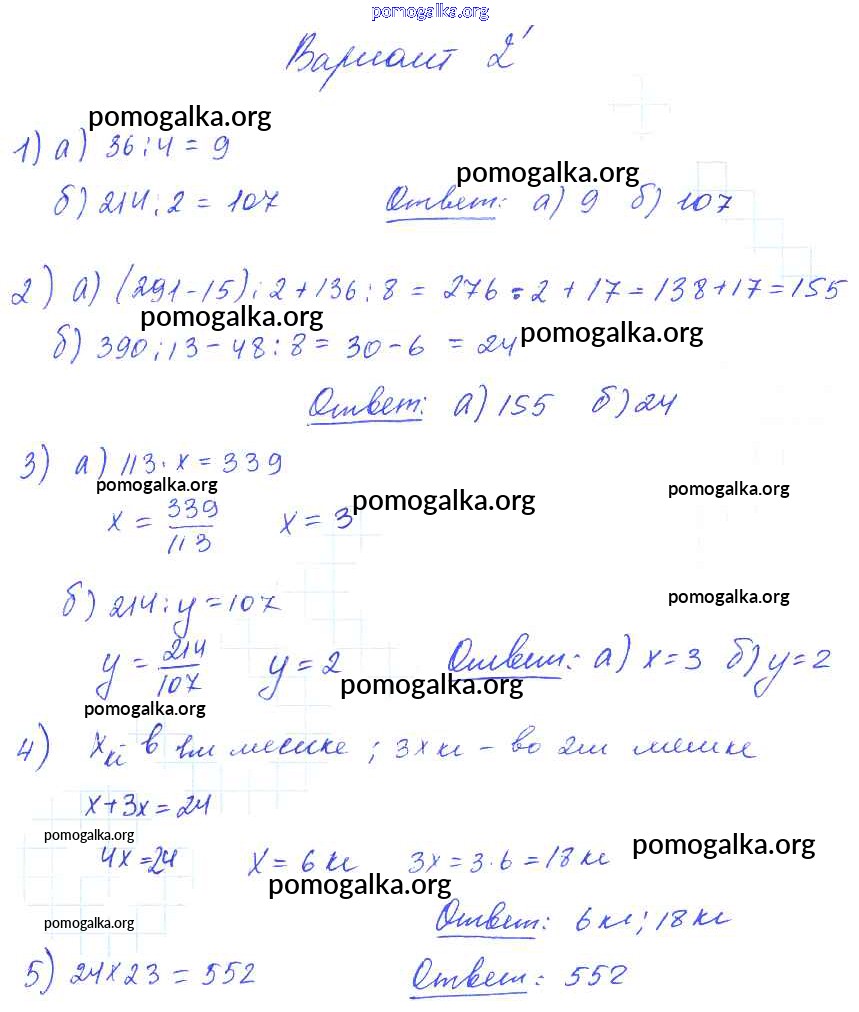 pomogalka.org
Вариант 2
pomogalka.org
1) а) 36:4 = 9
pomogalka.org
б) 214:2 = 107 Ответ: а) 9 б) 107
2) а) (291-15):2+136:8 = 276:2+17=138+17=155
pomogalka.org pomogalka.org
б) 390:13-48:8 = 30-6 = 24
Ответ: а) 155 б) 24
3) а) 113·x=339
pomogalka.org pomogalka.org pomogalka.org
x = 339/113 x = 3
б) 214:y=107
pomogalka.org
y = 214/107 y = 2 Ответ: а) x=3 б) y=2
pomogalka.org
pomogalka.org
4) x кг в 1м мешке; 3x кг - во 2м мешке
x+3x=24
pomogalka.org pomogalka.org
4x=24 x=6 кг 3x=3·6=18 кг
pomogalka.org
Ответ: 6 кг; 18 кг
pomogalka.org
5) 24×23=552 Ответ: 552